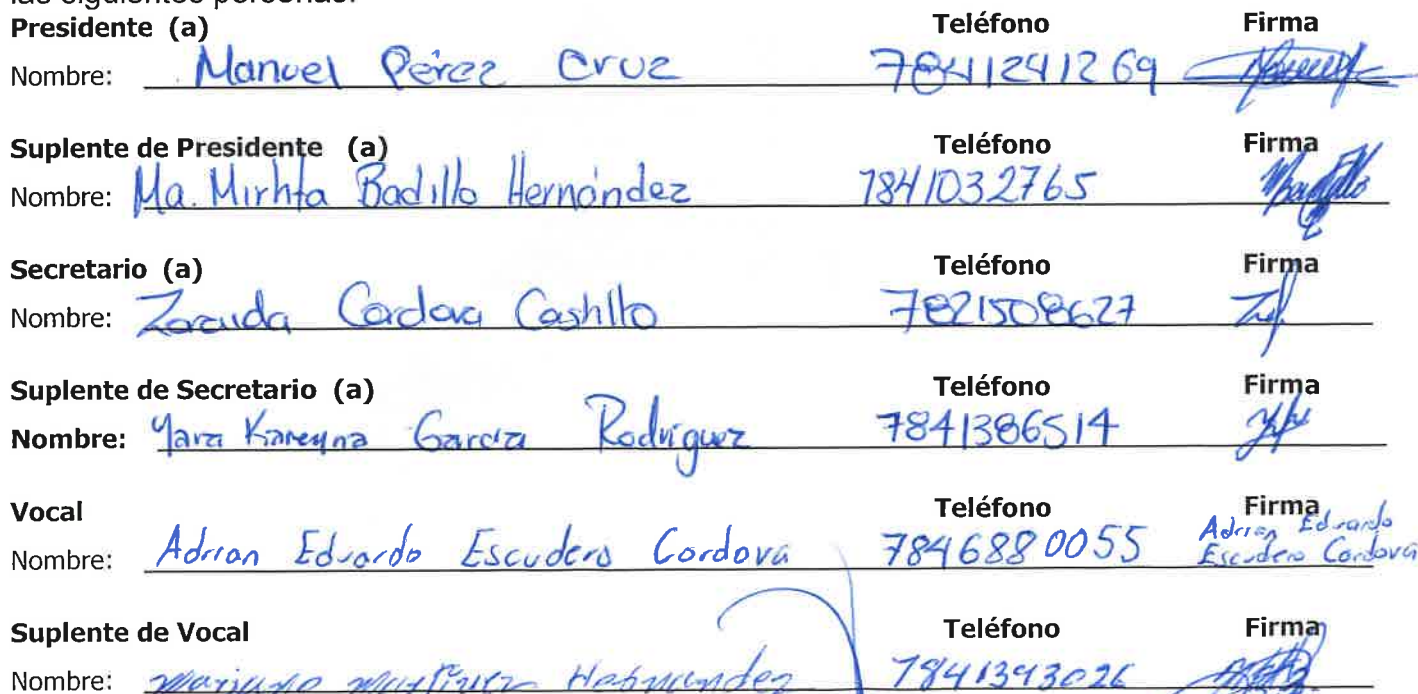 las siguientes personas:
Presidente (a) Teléfono Firma
Nombre: Manuel Pérez Cruz 78411241269
Suplente de Presidente (a) Teléfono Firma
Nombre: Ma. Mirhta Badillo Hernández 7841032765
Secretario (a) Teléfono Firma
Nombre: Zoraida Cordova Castillo 7821508627
Suplente de Secretario (a) Teléfono Firma
Nombre: Yara Kareyna Garcia Rodriguez 7841386514
Vocal Teléfono Firma
Nombre: Adrian Eduardo Escudero Cordova 7846880055 Adrian Eduardo
Escudero Cordova
Suplente de Vocal Teléfono Firma
Nombre: Mariano Martinez 7841393026